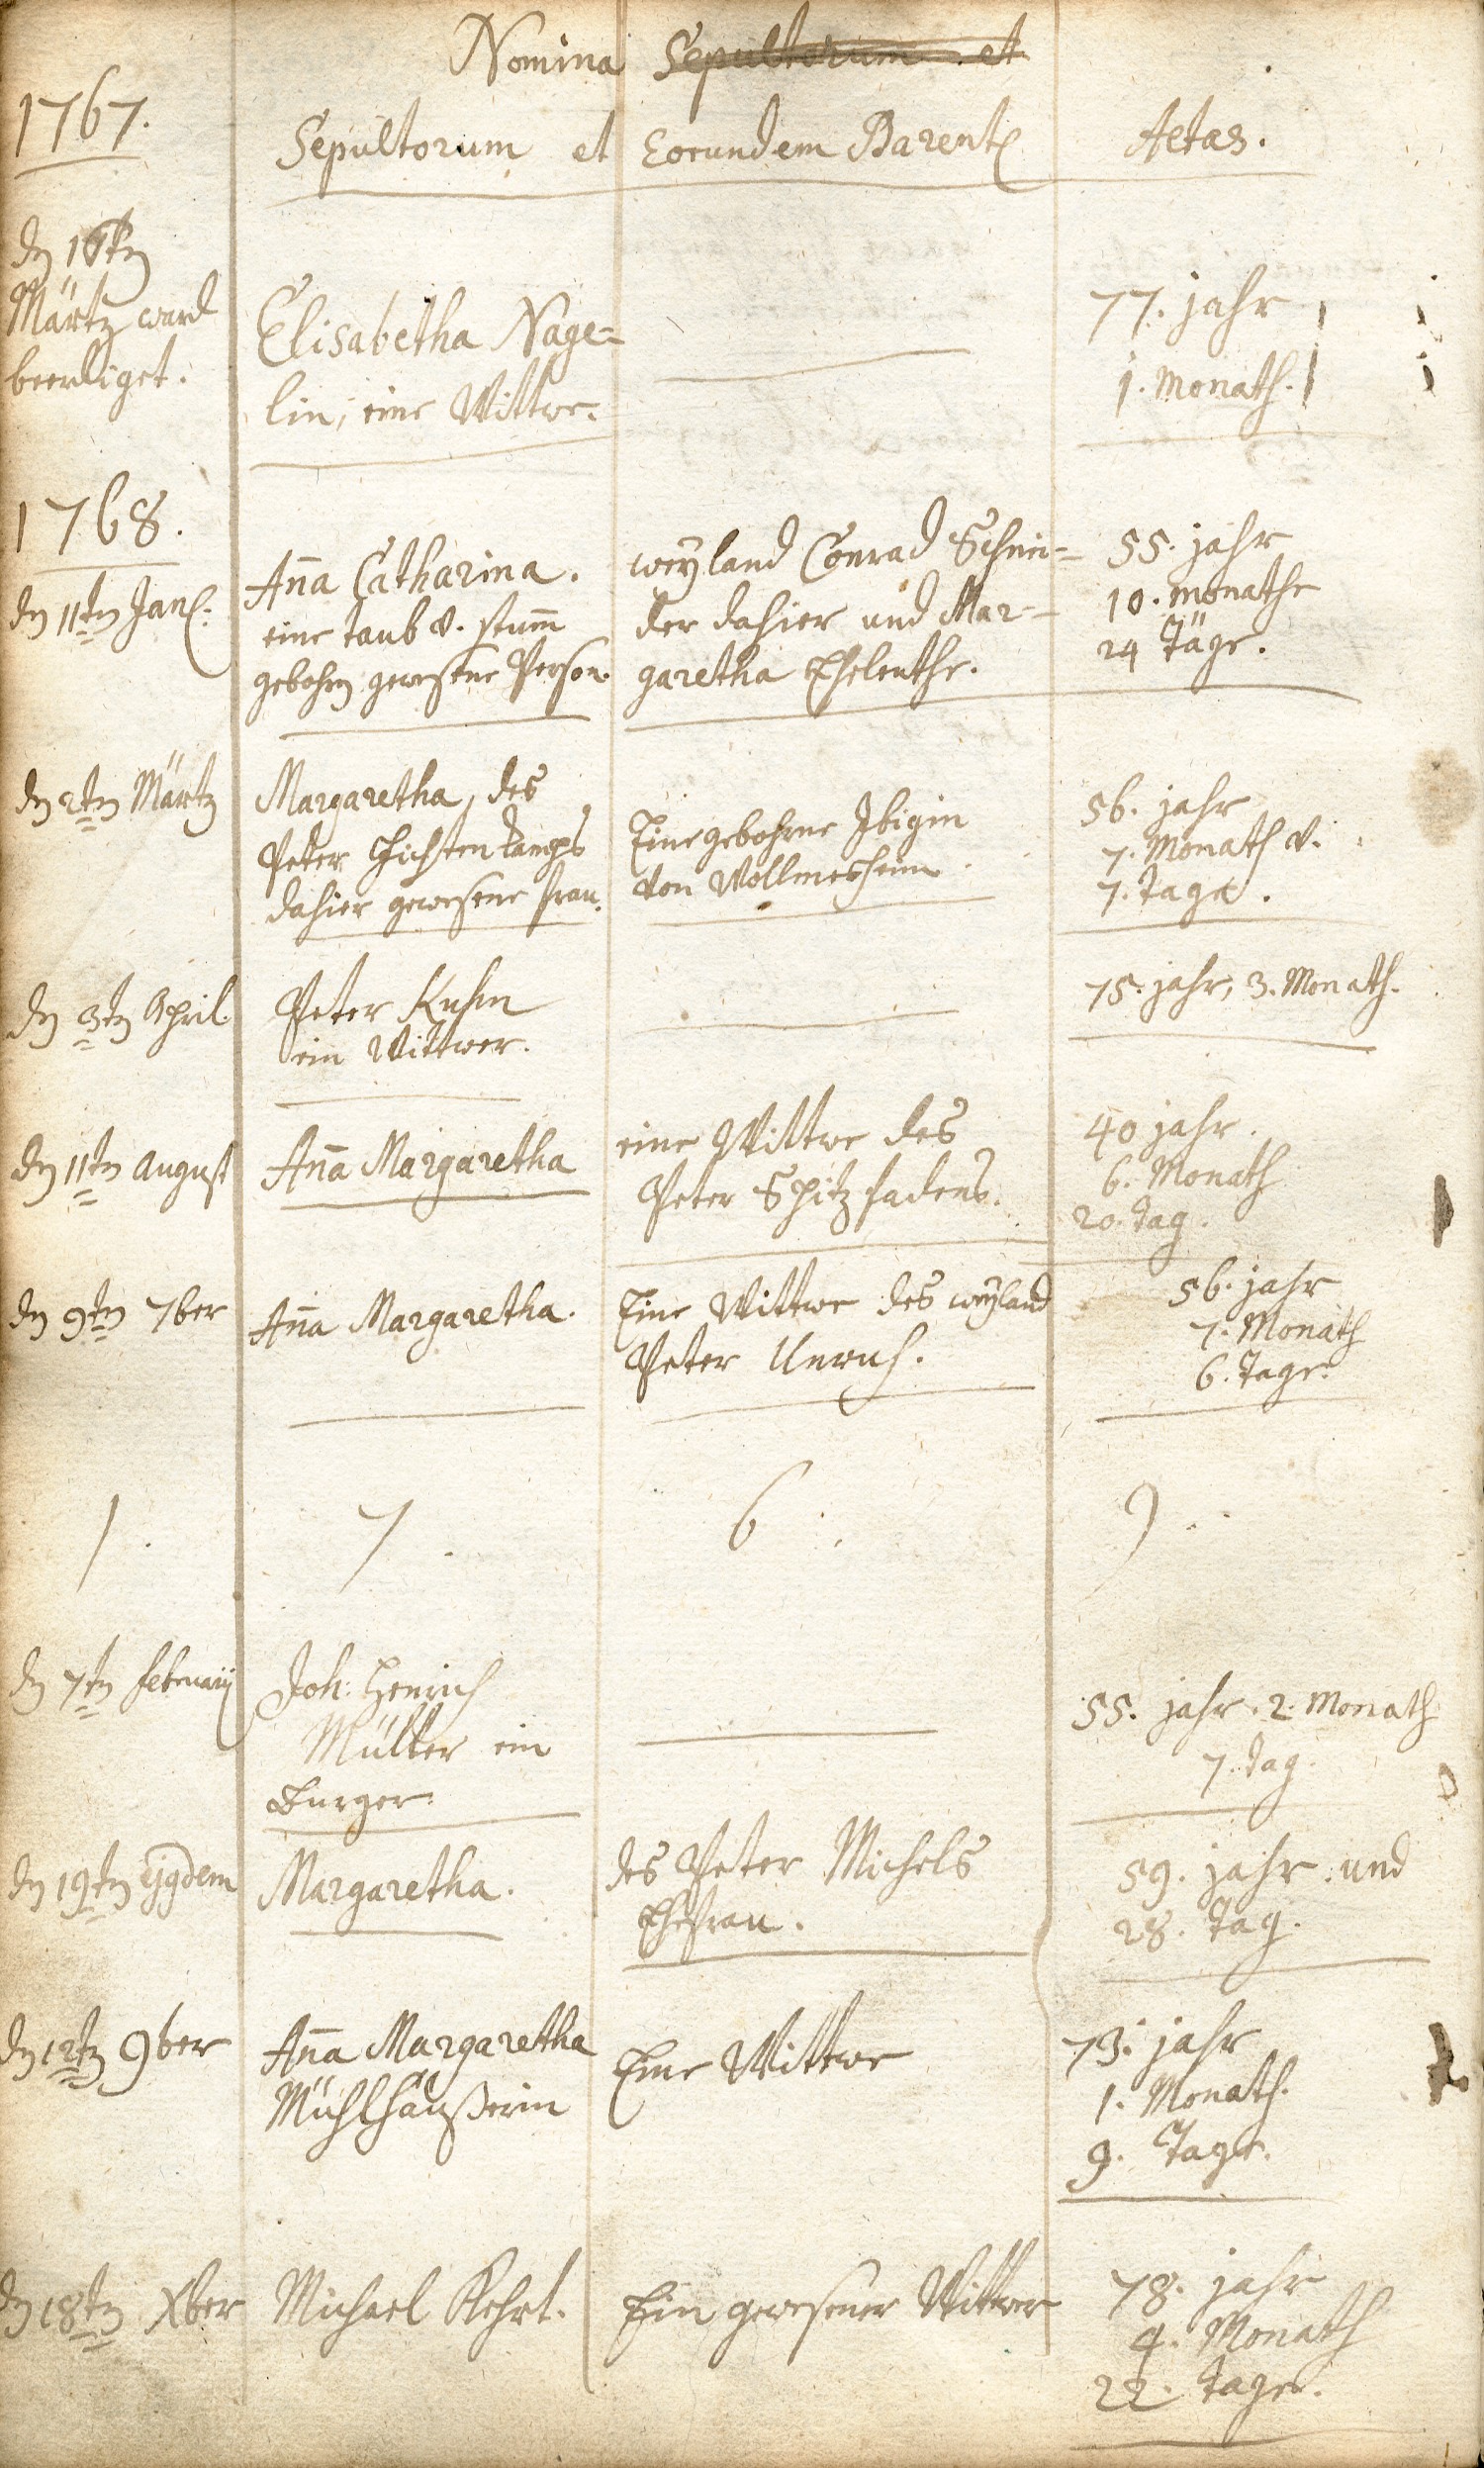 Nomina Sepultorum et
1767.
Sepultorum et Eorundem Parent
Aetas.
dn 16tn
Märtz ward
beerdiget.
Elisabetha Nage=
lin, eine Wittwe.
77. jahr
1. Monath.
1768.
dn 11tn Jan.
Aña Catharina.
eine taub v. stum̃
gebohrn gewesene Person.
weyland Conrad Schnei-
der dahier und Mar-
garetha Eheleuthe.
55. jahr
10. monathe
24 Täge.
dn 2tn Märtz
Margaretha, des
Peter
dahier gewesene frau.
Eine gebohrne
von Wollmesheim
56. jahr
7. Monath v.
7. Tage.
dn 3tn April
Peter Kuhn
ein Wittwer.
75. jahr, 3. Monath.
dn 11tn August
Aña Margaretha
eine Wittwe des
Peter Spitzfadens.
40 jahr.
6. Monath
20. tag.
dn 9tn 7ber
Aña Margaretha.
Eine Wittwe des weyland
Peter Unruh.
56. jahr
7. Monath
6. Tage.
1. 7. 6 9.
dn 7tn februarij
Joh: Henrich
Müller ein
Burger.
55. jahr. 2. Monath
7. tag.
dn 19tn ejgdem
Margaretha.
des Peter Michels
Ehefrau.
59. jahr und
28. Tag.
dn 12tn 9ber
Aña Margaretha
Mühlhäußerin
Eine Wittwe
73. jahr
1. Monath.
9. Tage.
dn 18tn Xber
Michael Kehrt.
Ein gewesener Wittwer
78. jahr
4. Monath
22. Tage.